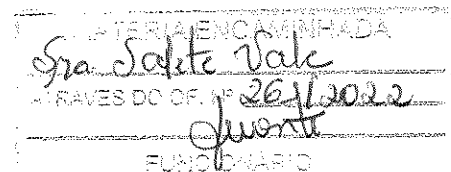 MATERIA ENCAMINHADA
Sra Salete Vale
ATRAVES DO OF. Nº 261/2022
FUNCIONARIO